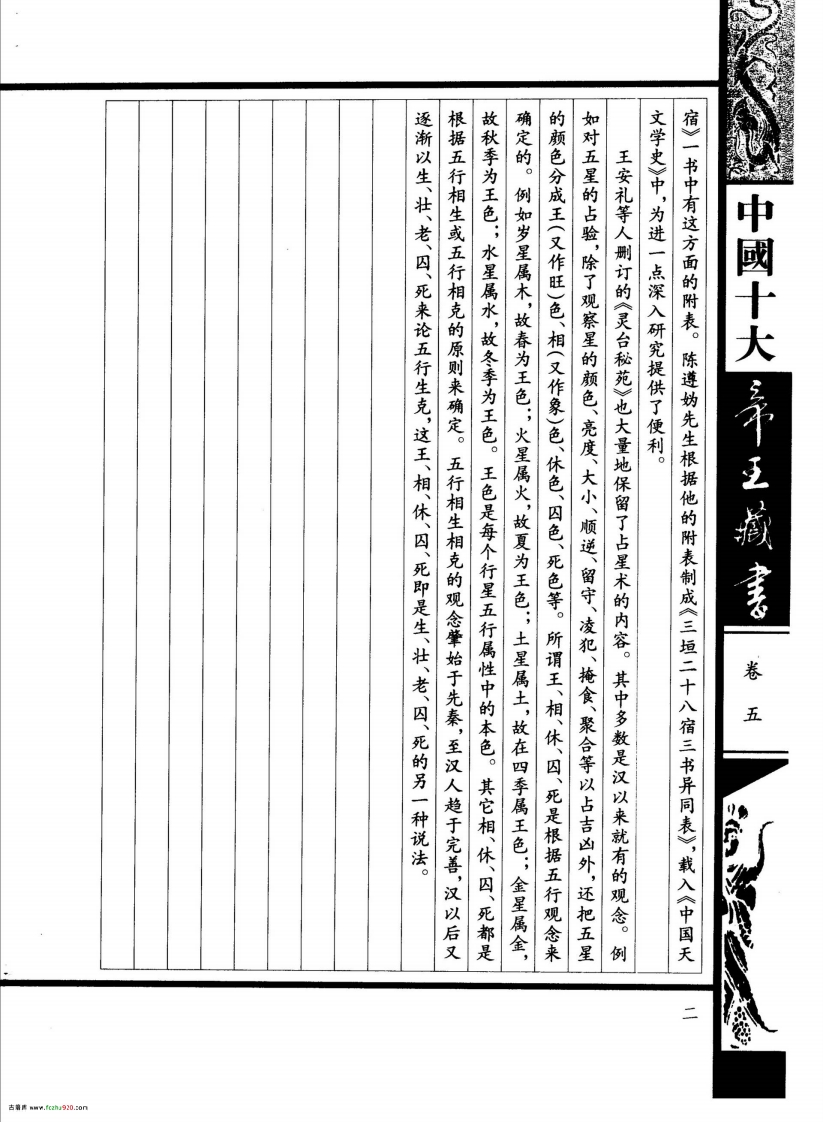 宿》一书中有这方面的附表。陈遵妫先生根据他的附表制成《三垣二十八宿三书异同表》，载入《中国天
文学史》中，为进一点深入研究提供了便利。
王安礼等人删订的《灵台秘苑》也大量地保留了占星术的内容。其中多数是汉以来就有的观念。例
如对五星的占验，除了观察星的颜色、亮度、大小、顺逆、留守、凌犯、掩食、聚合等以占吉凶外，还把五星
的颜色分成王（又作旺）色、相（又作象）色、休色、囚色、死色等。所谓王、相、休、囚、死是根据五行观念来
确定的。例如岁星属木，故春为王色；火星属火，故夏为王色；土星属土，故在四季属王色；金星属金，
故秋季为王色；水星属水，故冬季为王色。王色是每个行星五行属性中的本色。其它相、休、囚、死都是
根据五行相生或五行相克的原则来确定。五行相生相克的观念肇始于先秦，至汉人趋于完善，汉以后又
逐渐以生、壮、老、囚、死来论五行生克，这王、相、休、囚、死即是生、壮、老、囚、死的另一种说法。
中國十大
帝王藏書
卷五
二
古籍库 www.fczhu920.com